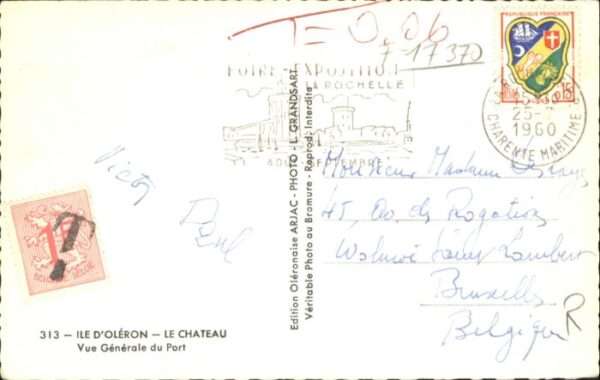 T=0,06
7-17370
FOIRE-EXPOSITION
LA ROCHELLE
SEPTEMBRE
REPUBLIQUE FRANÇAISE
25-
1960
CHARENTE MARITIME
Monsieur Madame
45, Av. des Rogations
Woluwé Saint Lambert
Bruxelles
Belgique
R
Edition Oléronaise ARJAC - PHOTO - L. GRANDSART
Véritable Photo au Bromure - Reprod. Interdite
1F
T
313 — ILE D'OLÉRON — LE CHATEAU
Vue Générale du Port